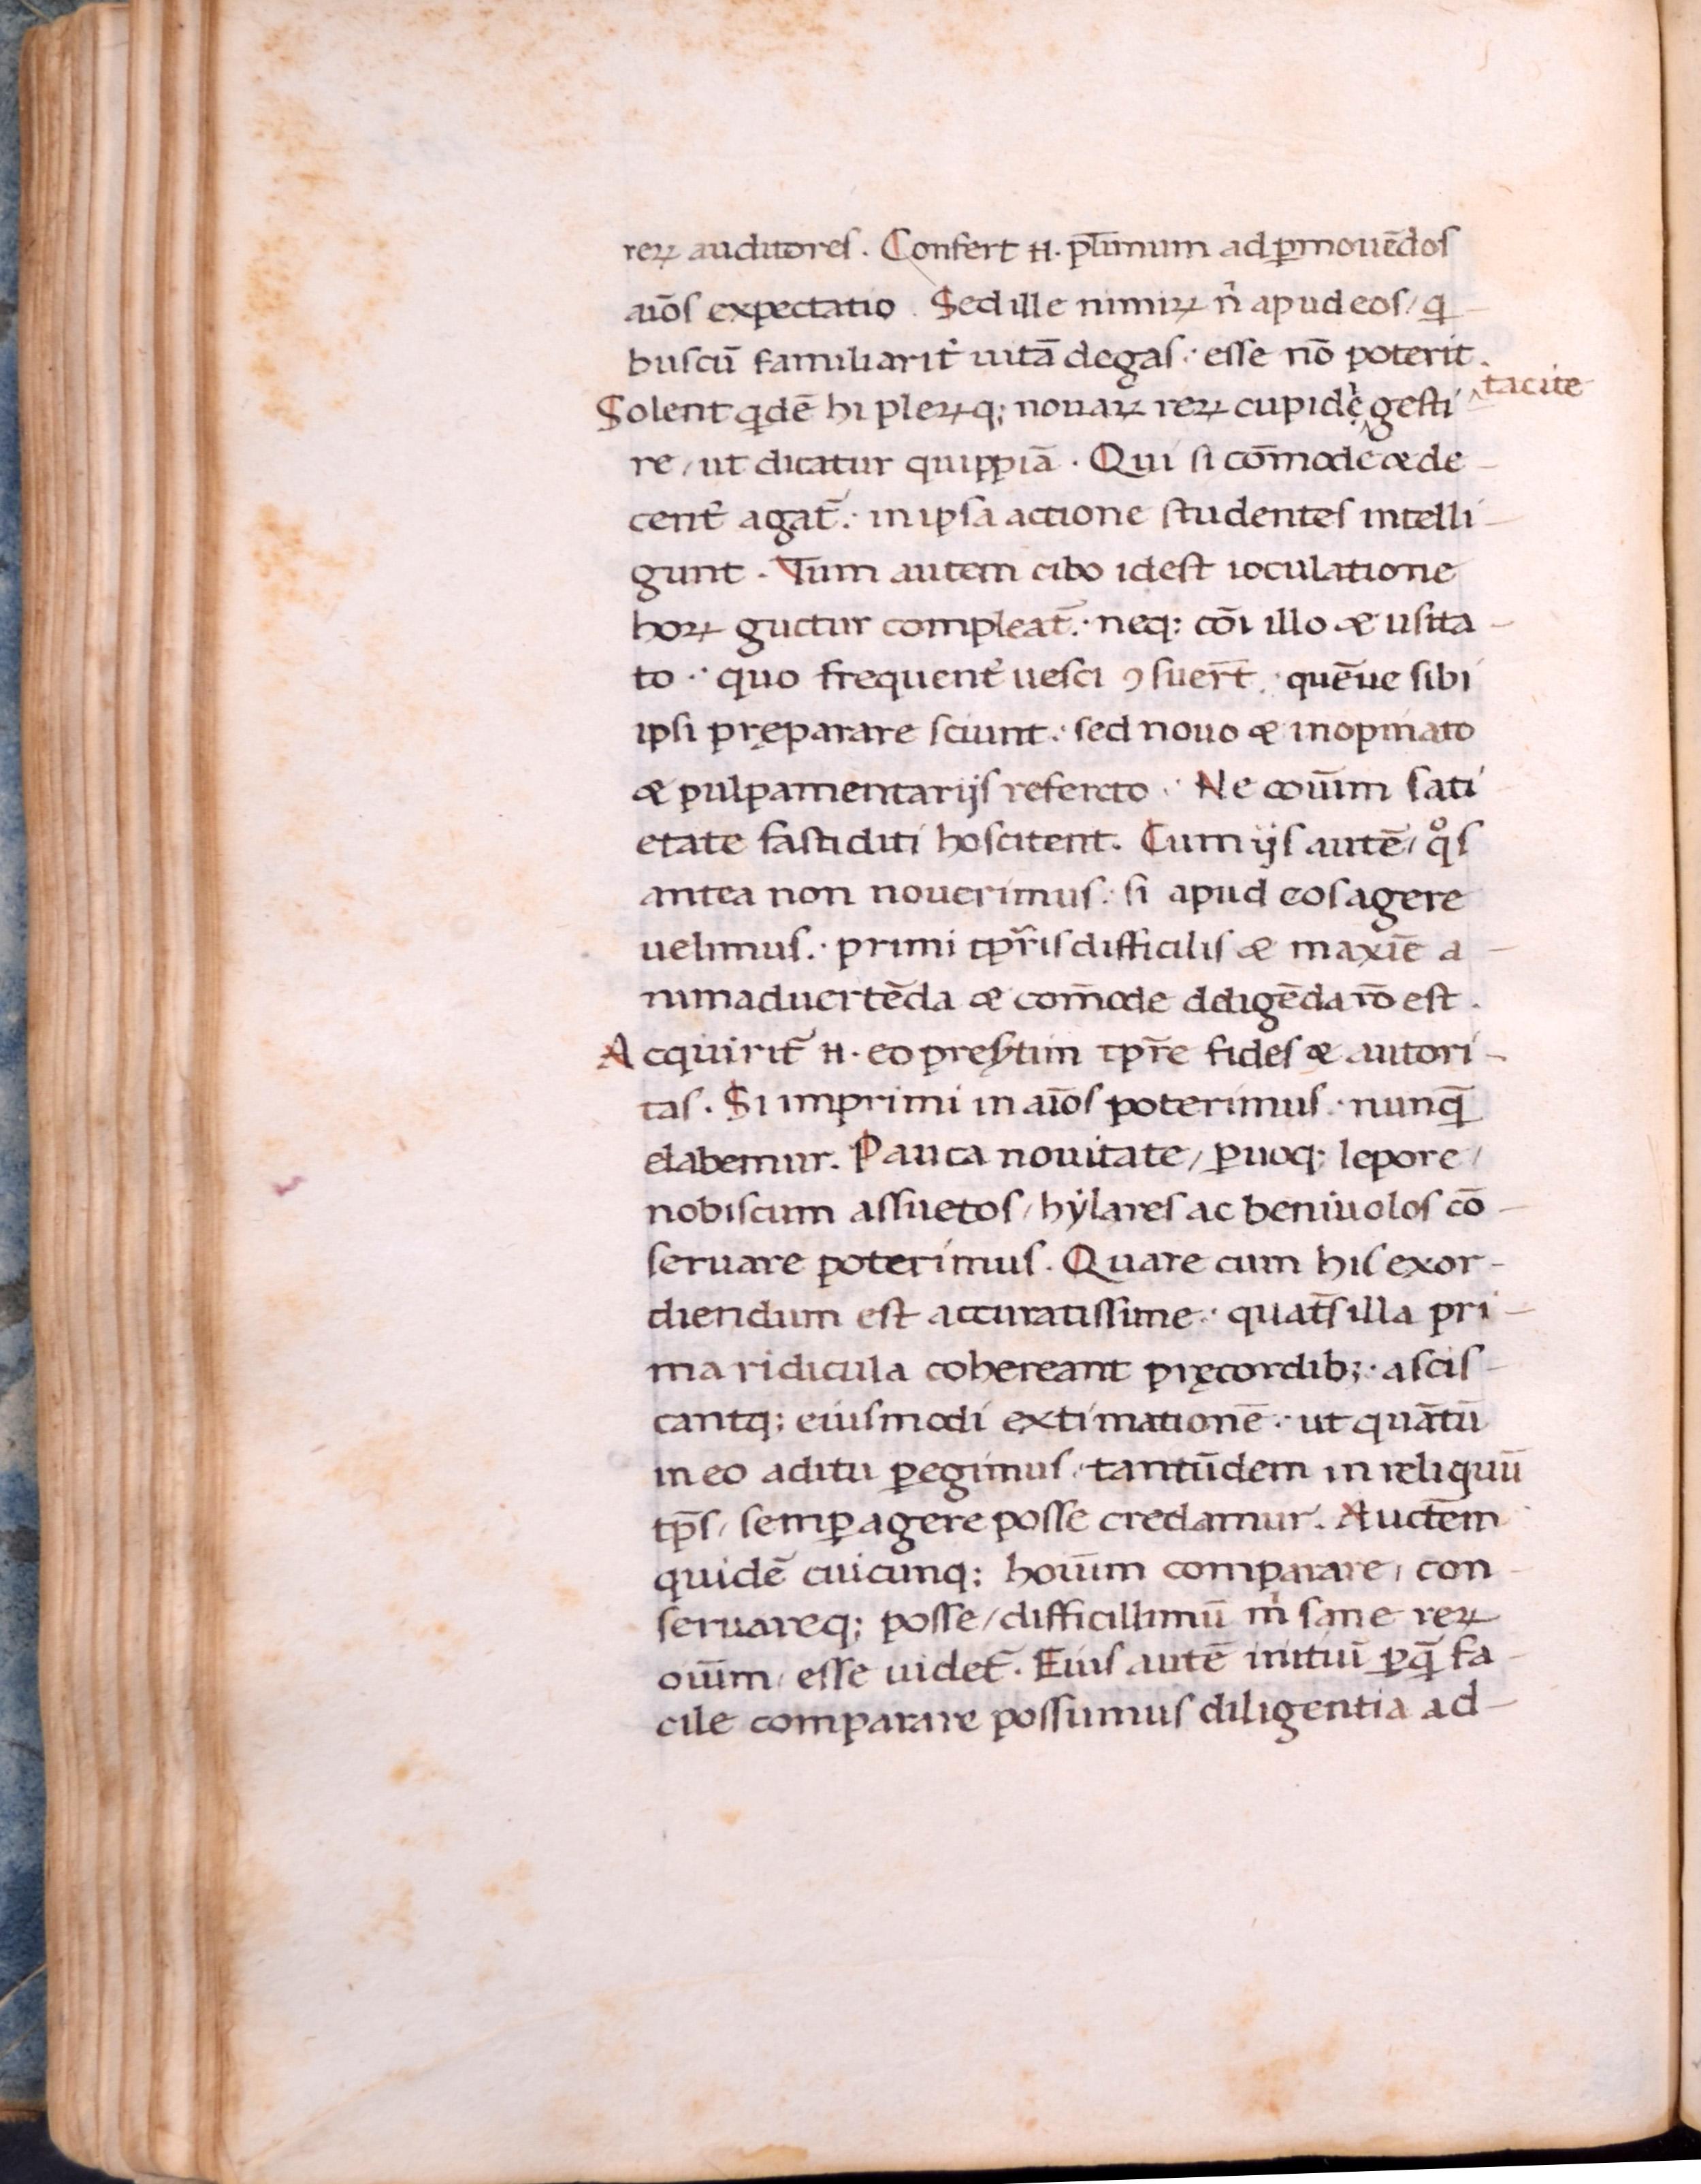 reꝝ auditores. Confert .n. pl̄imum ad ꝑmouēdos
aīos expectatio. Sed ille nimiꝝ n̄ apud eos / q
buscū familiarit̄ uitā degas. esse nō poterit.
Solent qdē hi pleꝝq; nouaꝝ reꝝ cupidè gesti tacite
re / ut dicatur quippiā. Qui si cōmode & de
cent̄ agat̄. in ipsa actione studentes intelli
gunt. Tum autem cibo idest ioculatione
hoꝝ guctur compleat̄. neq; cōi illo & usita
to. quo frequent̄ uesci ꝯsuer̄t. quēue sibi
ipsi pręparare sciunt. sed nouo & inopinato
& pulpamentarijs refercto. Ne couīum sati
etate fastiditi hoscitent. Cum ijs autē / qͦs
antea non nouerimus. si apud eos agere
uelimus. primi tpr̄is difficilis & maxīe a
nimaduertēda & com̄ode deligēda rō est.
Acquirit̄ .n. eo presertim tpr̄e fides & autori
tas. Si imprimi in aīos poterimus. nunq̄
elabemur. Pauca nouitate / ꝑuoq; lepore /
nobiscum assuetos / hẏlares ac beniuolos cō
seruare poterimus. Quare cum his exor-
diendum est accuratissime. quat̄s illa pri
ma ridicula cohereant pręcordib;. ascis
cantq; eiusmodi extimationē. ut quātū
in eo aditu ꝑegimus. tantūdem in reliquū
tp̄s / semꝑ agere posse credamur. Auctēm
quidē cuicunq; hoīum comparare / con
seruareq; posse / difficillimū m̄ sane reꝝ
oīum / esse uidet̄. Eius autē initiū ꝑq̄ fa
cile comparare possumus diligentia ad